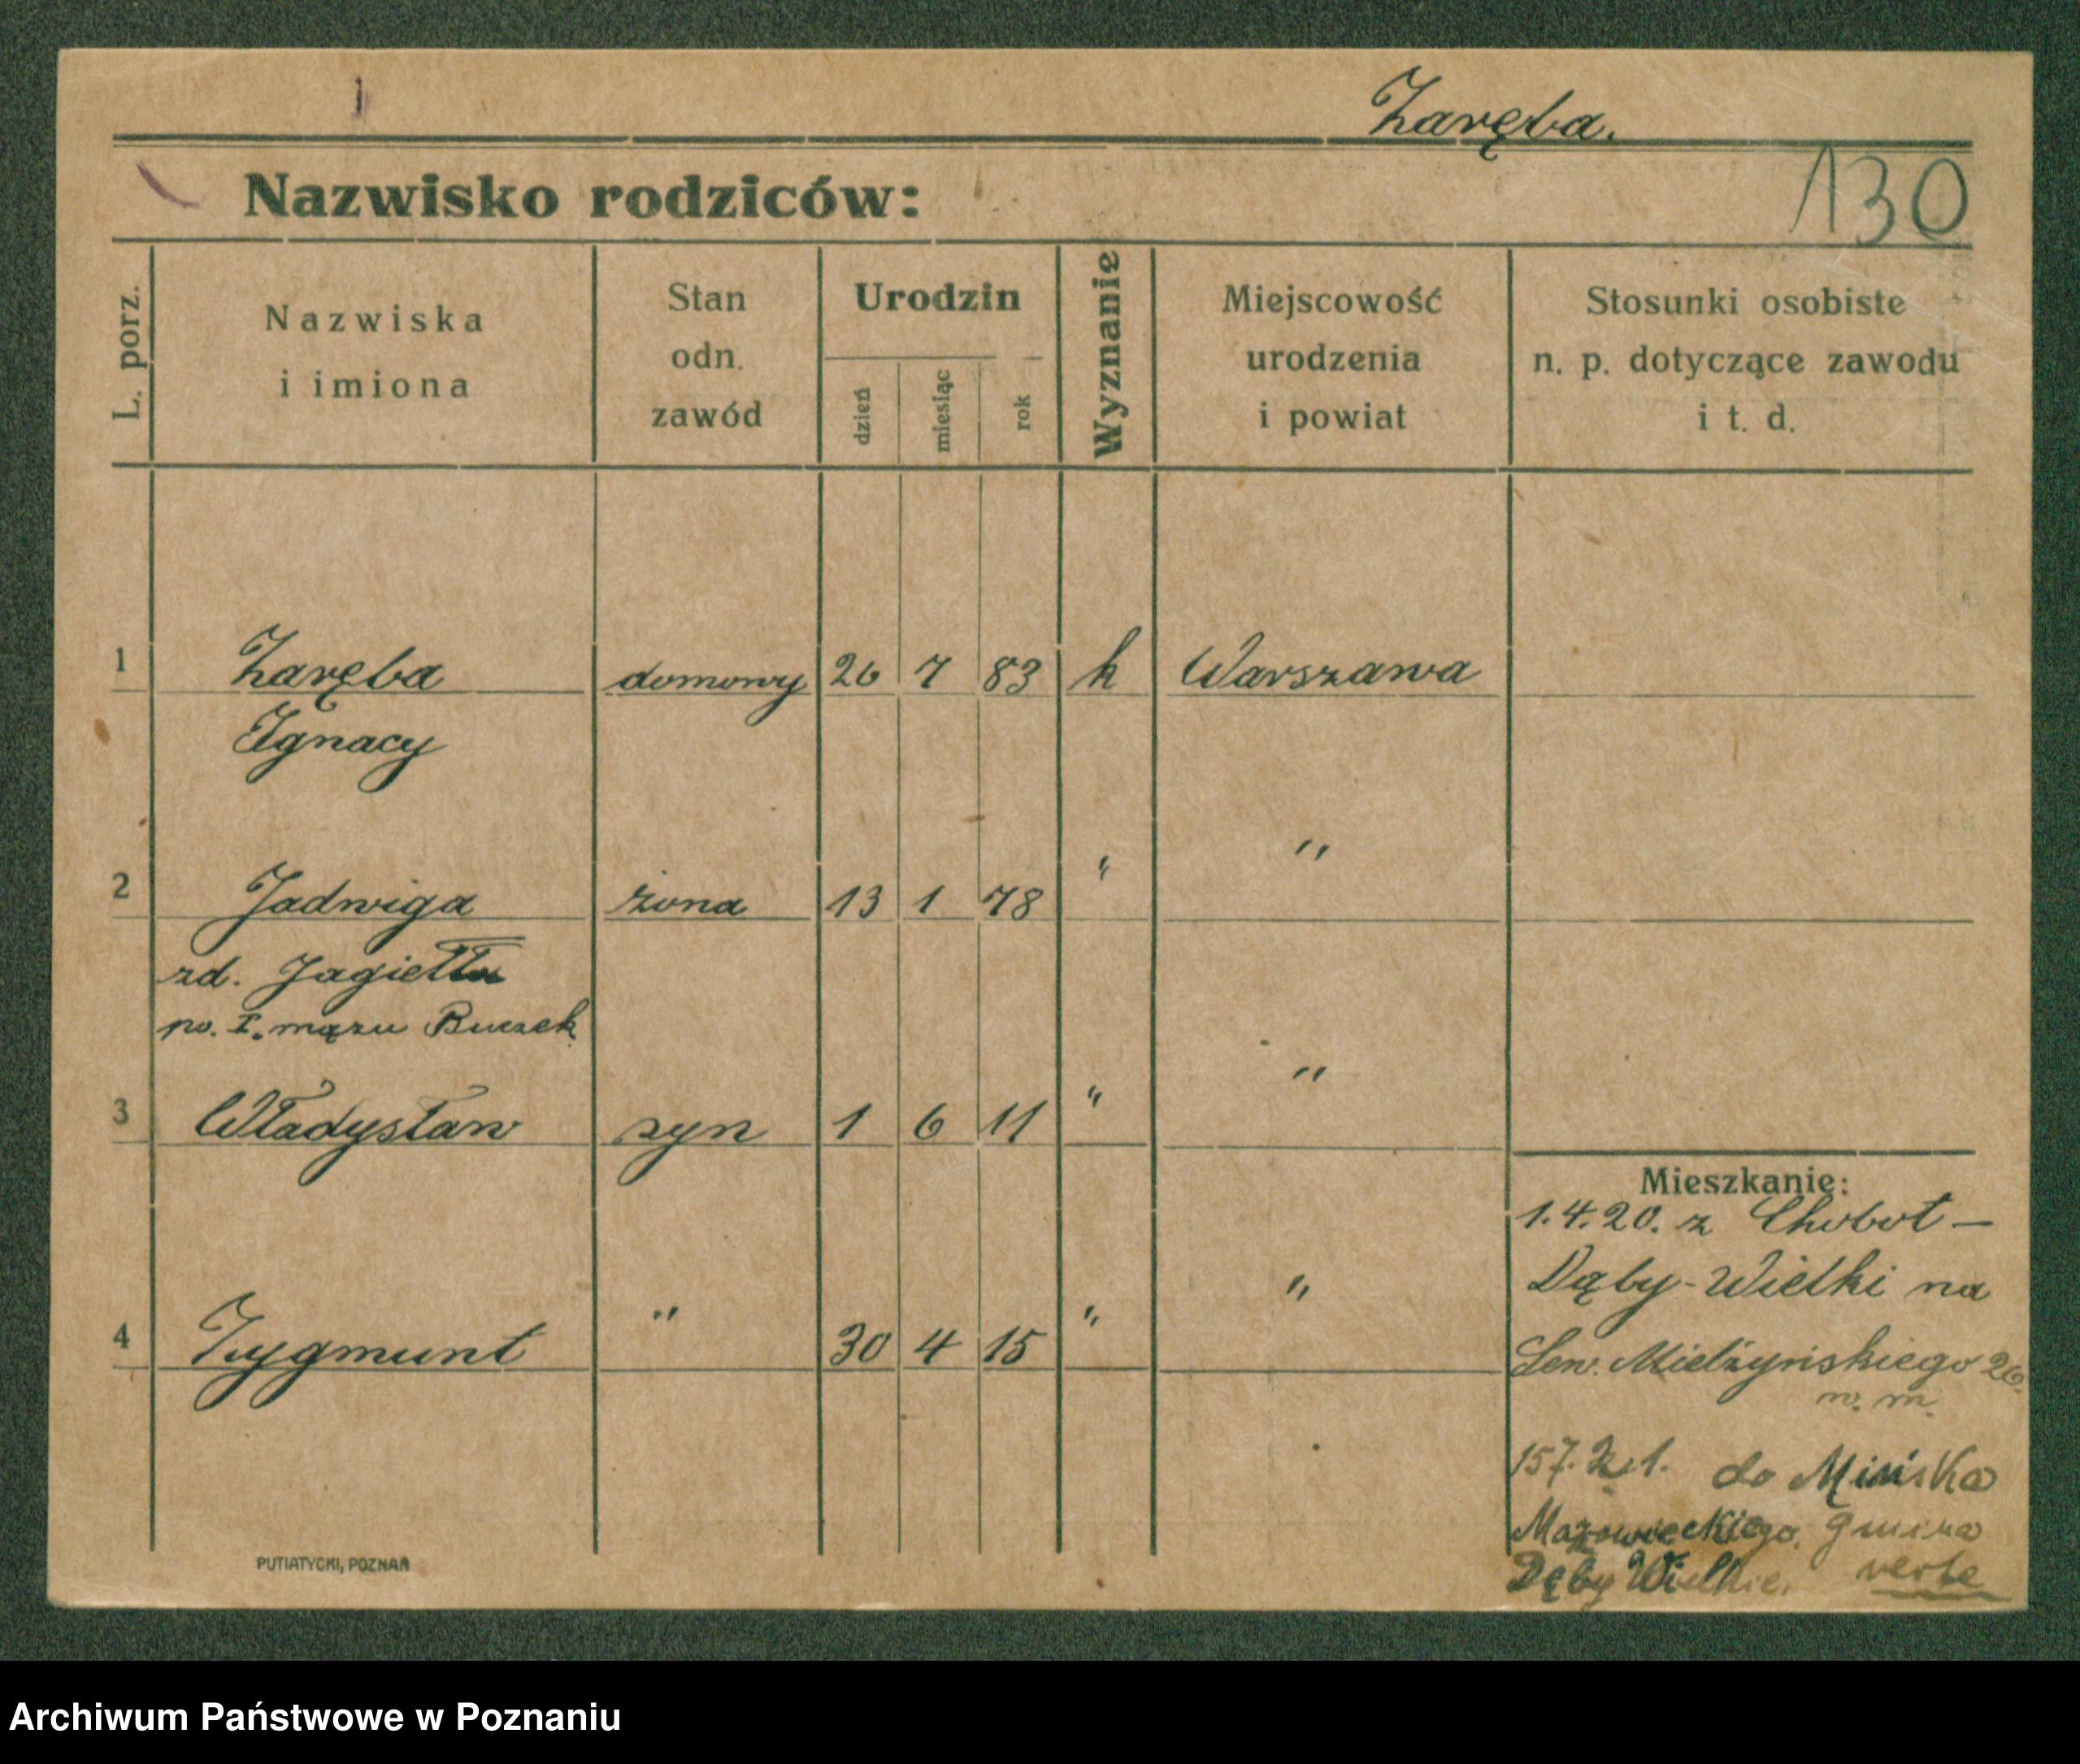 1
Zaręba.
Nazwisko rodziców:
130
L. porz.
Nazwiska
i imiona
Stan
odn.
zawód
Urodzin
dzień
miesiąc
rok
Wyznanie
Miejscowość
urodzenia
i powiat
Stosunki osobiste
n. p. dotyczące zawodu
i t. d.
1 Zaręba domowy 26 7 83 k Warszawa
Ignacy
2 Jadwiga żona 13 1 78 " "
zd. Jagiełło
po. I. mężu Buczek
3 Władysław syn 1 6 11 " "
4 Zygmunt " 30 4 15 " "
Mieszkanie:
1.4.20. z Chobot –
Dęby-Wielki na
Sew. Mielżyńskiego 26.
do Mińska
Mazowieckiego, gmina
Dęby Wielkie. verte
PUTIATYCKI, POZNAŃ
Archiwum Państwowe w Poznaniu